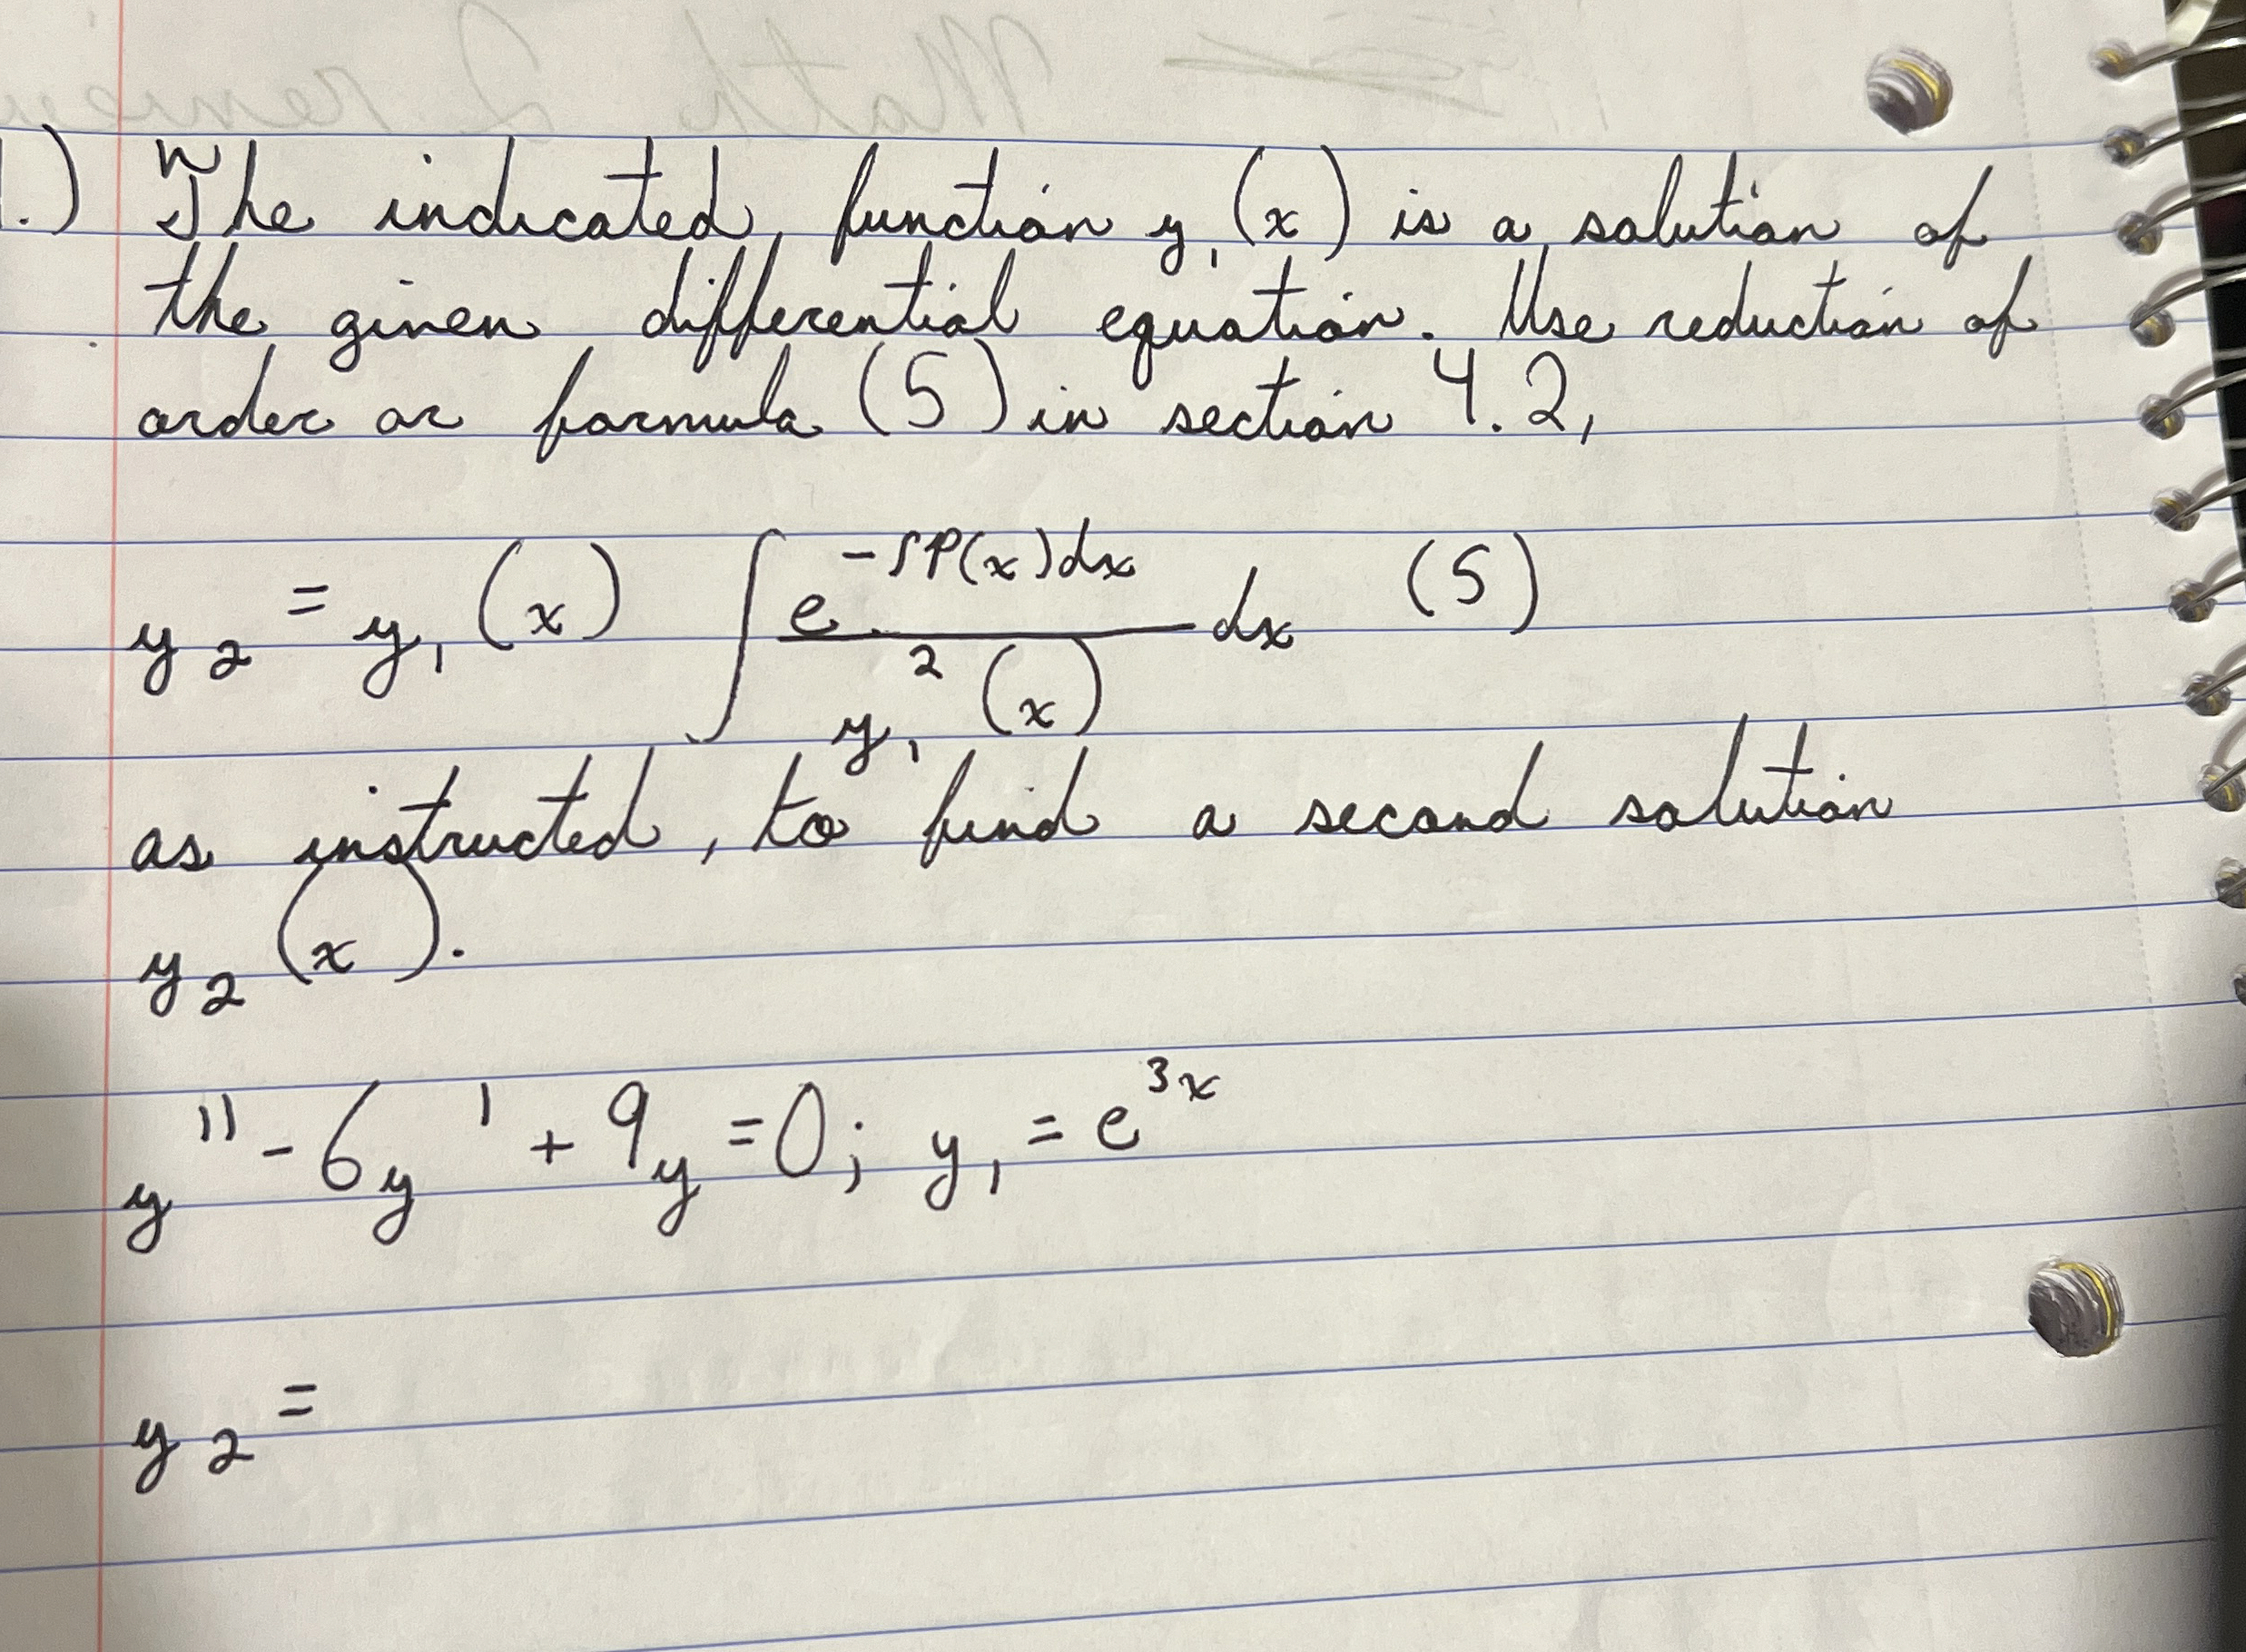 1.) The indicated function y₁(x) is a solution of
the given differential equation. Use reduction of
order or formula (5) in section 4.2,
y₂ = y₁(x) ∫ e^(-∫P(x)dx) / y₁²(x) dx (5)
as instructed, to find a second solution
y₂(x).
y'' - 6y' + 9y = 0; y₁ = e^(3x)
y₂ =